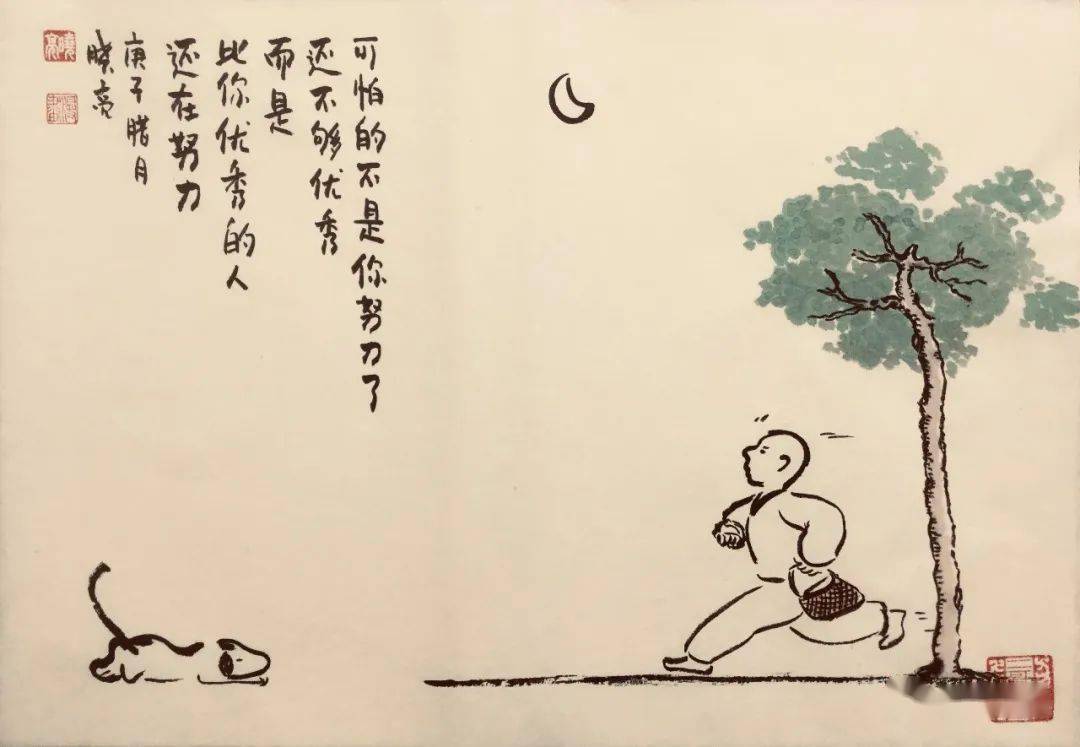 可怕的不是你努力了
还不够优秀
而是
比你优秀的人
还在努力
庚子腊月
晓亮